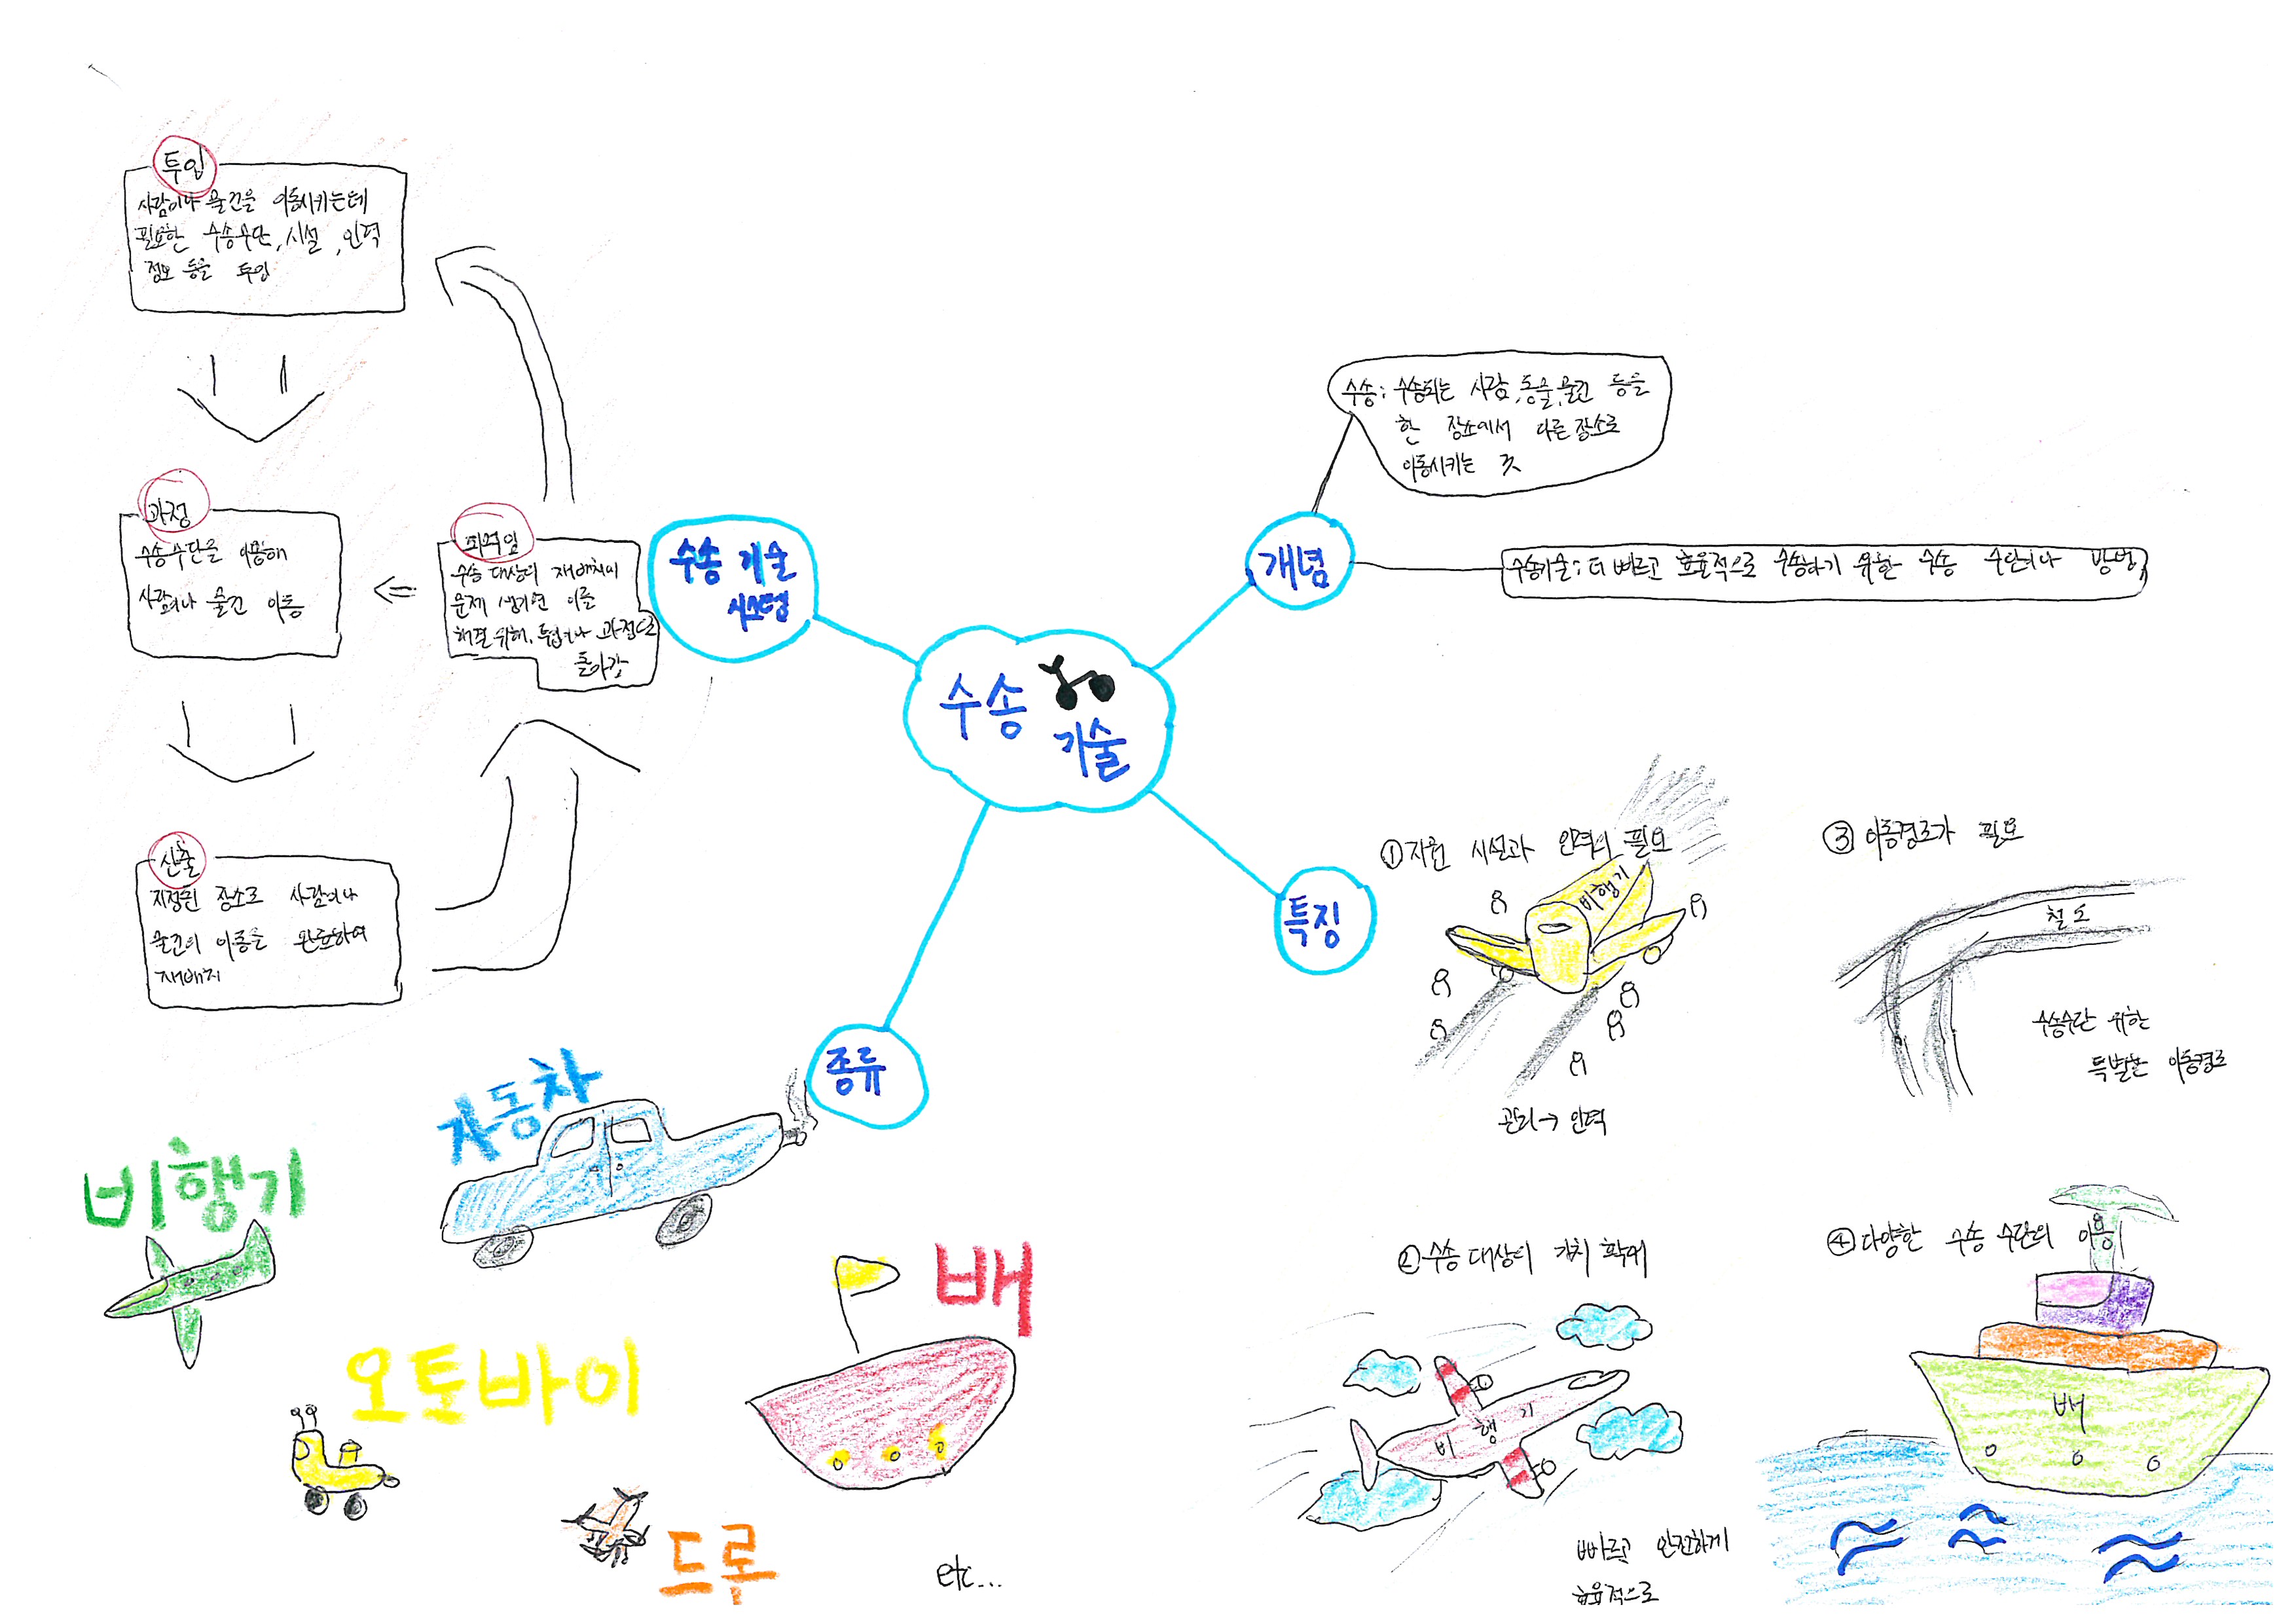 투입
사람이나 물건을 이동시키는데
필요한 수송수단, 시설, 인력
정보 등을 투입
과정
수송수단을 이용해
사람이나 물건 이동
산출
지정된 장소로 사람이나
물건의 이동을 완료하여
재배치
되먹임
수송 대상의 재배치에
문제 생기면 이를
해결 위해, 투입이나 과정으로
돌아감
수송 기술
시스템
수송
기술
개념
수송 : 수송되는 사람, 동물, 물건 등을
한 장소에서 다른 장소로
이동시키는 것
수송기술 : 더 빠르고 효율적으로 수송하기 위한 수송 수단이나 방법
특징
① 지원 시설과 인력의 필요
비행기
관리→ 인력
② 수송 대상의 가치 확대
비행기
빠르고 안전하게
효율적으로
③ 이동경로가 필요
철도
수송수단 위한
특별한 이동경로
④ 다양한 수송 수단의 이용
배
종류
자동차
비행기
배
오토바이
드론
etc...